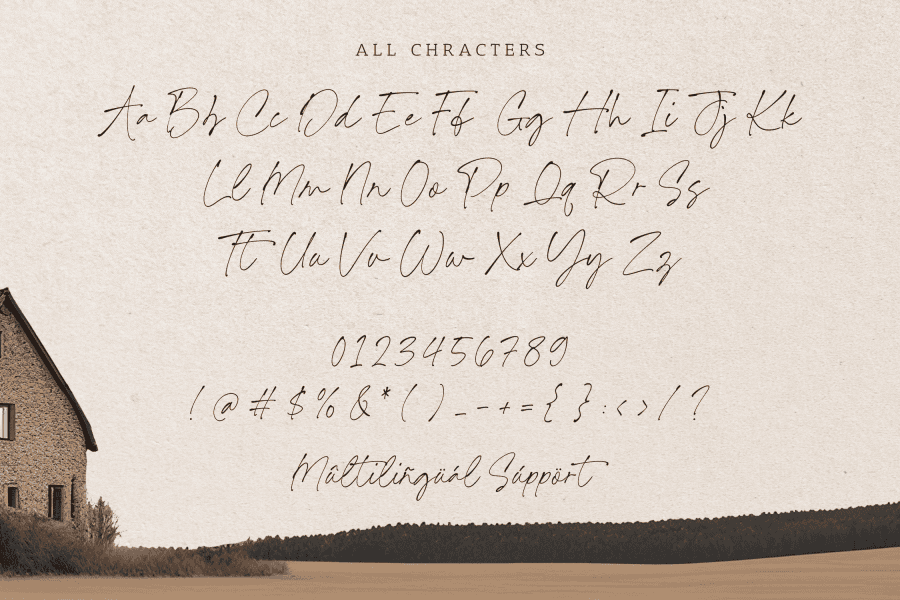 ALL CHRACTERS
Aa Bb Cc Dd Ee Ff Gg Hh Ii Jj Kk
Ll Mm Nn Oo Pp Qq Rr Ss
Tt Uu Vv Ww Xx Yy Zz
0123456789
! @ # $ % & * ( ) _ - + = { } : < > / ?
Múltiliñgüál Súppört